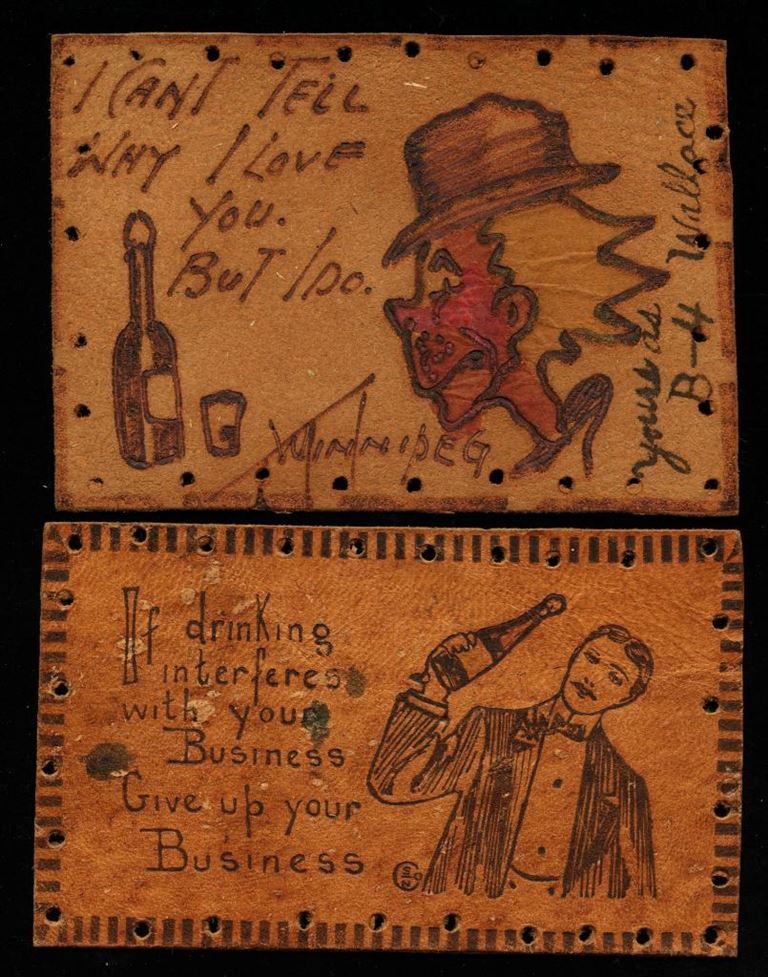 I CAN'T TELL
WHY I LOVE
YOU.
BUT I DO.
WINNIPEG
yours as
B-4 Wallace
If drinking
interferes
with your
Business
Give up your
Business